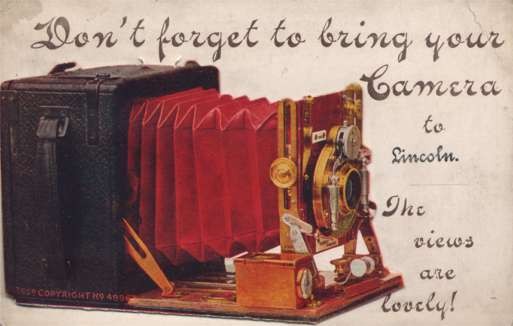 Don't forget to bring your
Camera
to
Lincoln.
The
views
are
lovely!
COPYRIGHT No